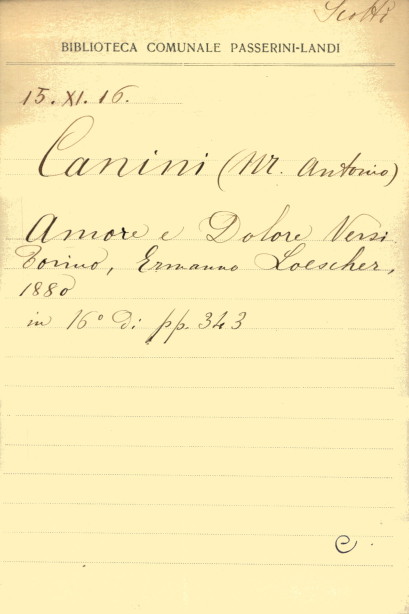 Scotti
BIBLIOTECA COMUNALE PASSERINI-LANDI
15. XI. 16.
Canini (M. Antonio)
Amore e Dolore Versi
Torino, Ermanno Loescher,
1880
in 16° di pp. 343
C.